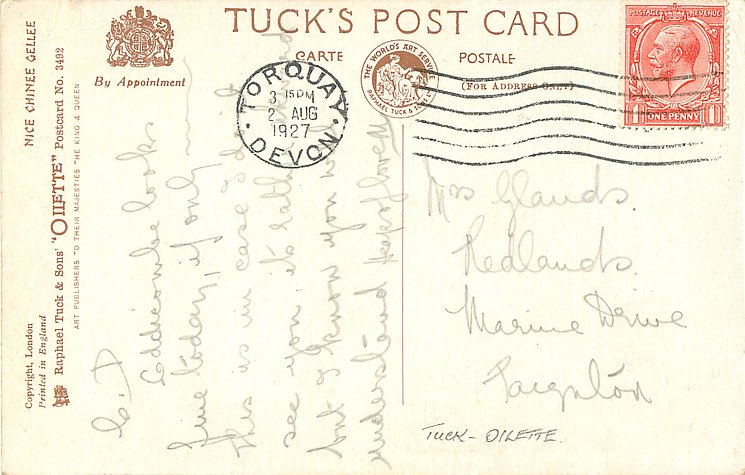 TUCK'S POST CARD
CARTE POSTALE
By Appointment
(FOR ADDRESS ONLY.)
THE WORLD'S ART SERVICE
RAPHAEL TUCK & SONS LTD
TORQUAY
3 15 PM
2 AUG
1927
DEVON
POSTAGE REVENUE
1 ONE PENNY 1
NICE CHINEE GELLEE
Raphael Tuck & Sons' "OILETTE" Postcard No. 3492
ART PUBLISHERS TO THEIR MAJESTIES THE KING & QUEEN
Copyright, London
Printed in England
looks
fine today, if only
this is in case I don't
see you its rather
but I know you
understand heaps of love
Mrs Glands.
Redlands.
Marine Drive
Paignton
TUCK - OILETTE.